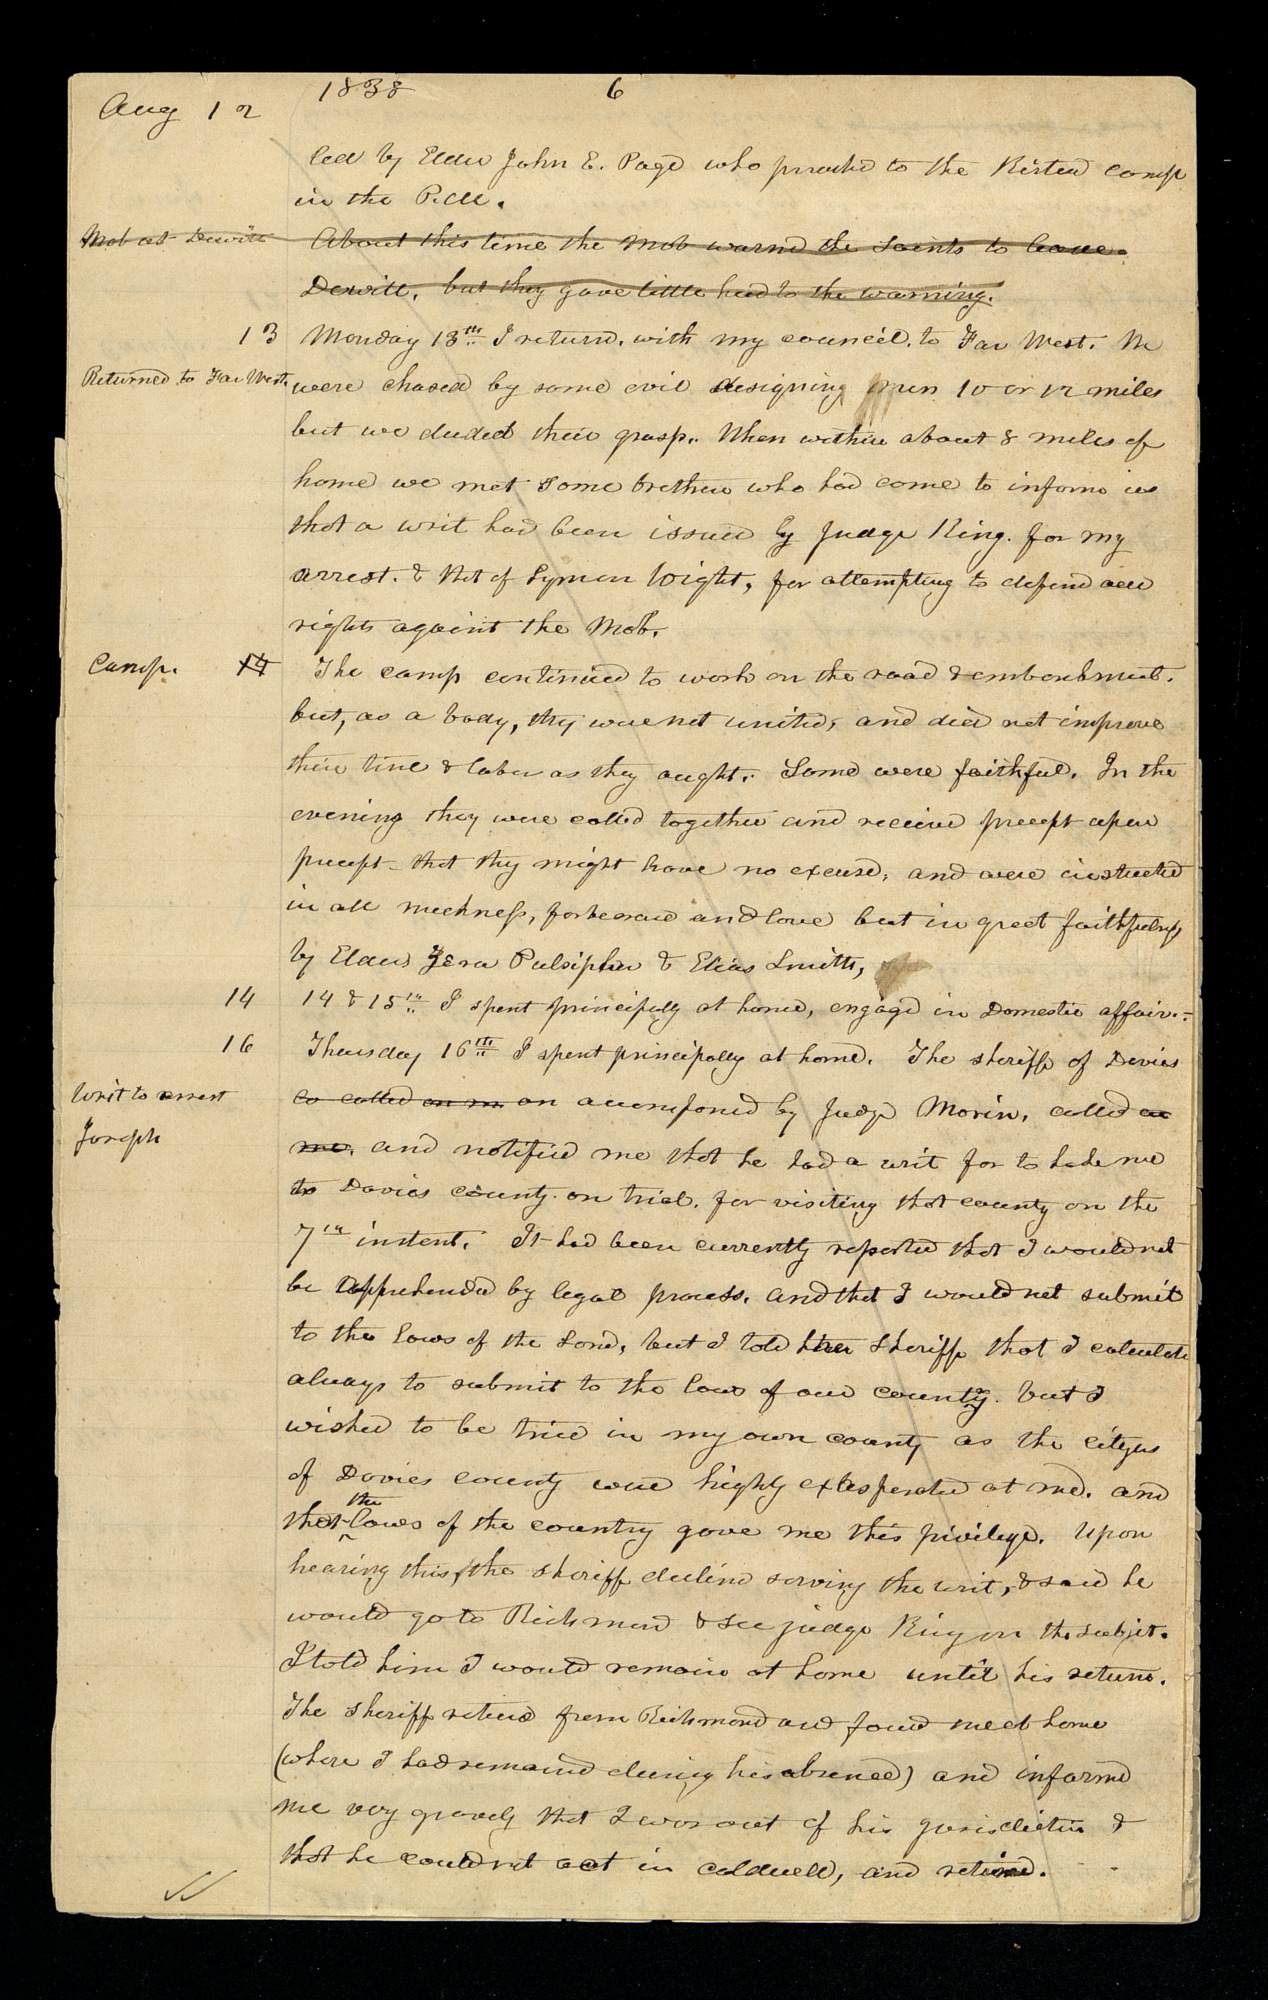 1838 6
Aug 12
led by Elder John E. Page who preached to the Kirtland camp
in the P.M.
Mob at Dewitt About this time the mob warnd the saints to leave
Dewitt, but they gave little heed to the warning.
13 Monday 13th I return, with my council, to Far West. We
Returned to Far West. were chased by some evil designing men 10 or 12 miles
but we eluded their grasp. When within about 8 miles of
home we met some brethren who had come to inform us
that a writ had been issued by Judge King. for my
arrest. & that of Lyman Wight, for attempting to defend our
rights against the Mob.
Camp. 14 The camp continued to work on the road & embankment.
but, as a body, they were not united, and did not improve
their time & labor as they ought. Some were faithful. In the
evening they were called together and received precept upon
precept that they might have no excuse, and were instructed
in all meekness, forbearance and love but in great faithfulness
by Elders Zera Pulsipher & Elias Smith,
14 14 & 15th I spent principally at home, engagd in Domestic affairs.
16 Thursday 16th I spent principally at home. The sheriff of Davies
Writ to arrest co called on me on accompanied by Judge Morin, called on
Joseph me, and notified me that he had a writ for to take me
to Davies county on trial, for visiting that county on the
7th instant. It had been currently reported that I would not
be apprehended by legal process, and that I would not submit
to the laws of the land, but I told the Sheriff that I calculate
always to submit to the laws of our county. but I
wished to be tried in my own county as the citizens
of Davies county were highly exasperated at me. and
the
that laws of the country gave me this privilege. Upon
hearing this, the sheriff declined serving the writ, & said he
would go to Richmond & see judge King on the subject.
I told him I would remain at home until his return.
The sheriff returned from Richmond and found me at home
(where I had remaind during his absence) and informd
me very gravely that I was out of his jurisdiction &
that he could not act in caldwell, and retired.